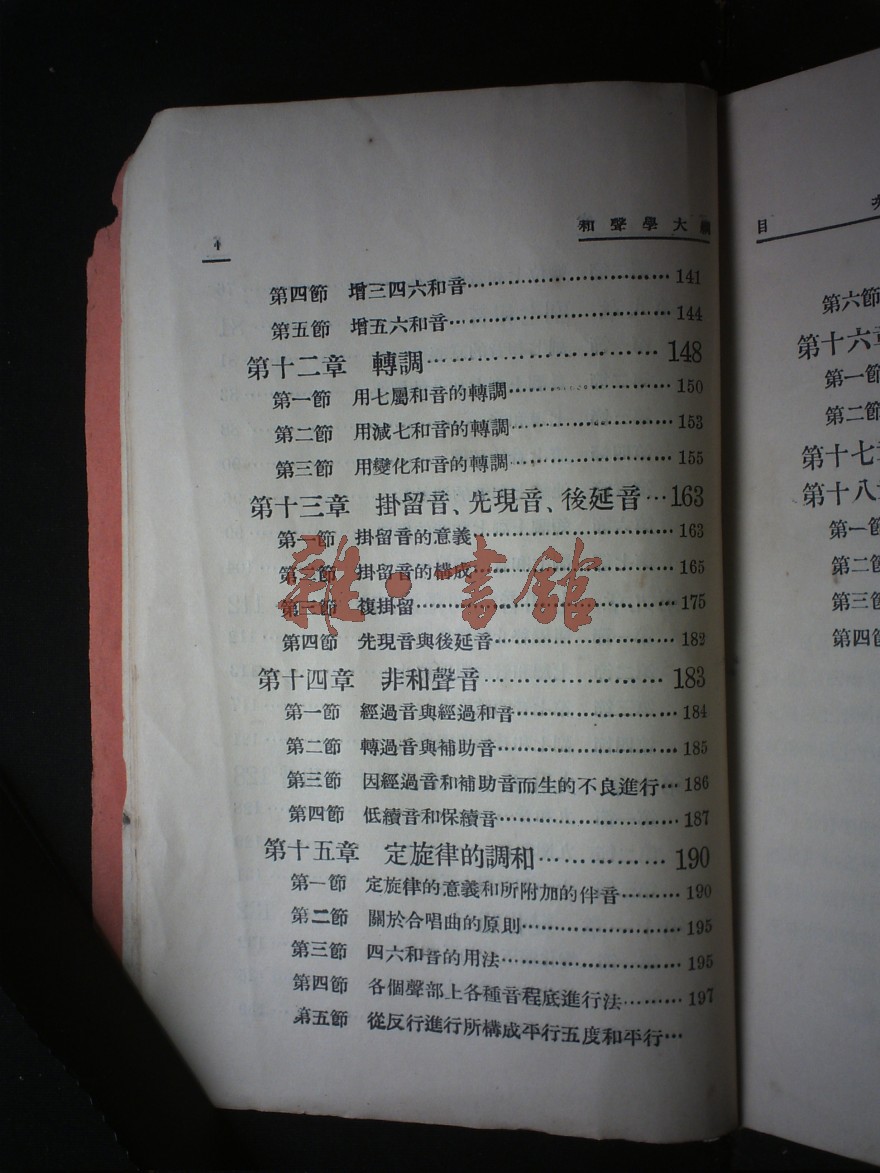 4
和聲學大綱
第四節 增三四六和音……141
第五節 增五六和音……144
第十二章 轉調……148
第一節 用七屬和音的轉調……150
第二節 用減七和音的轉調……153
第三節 用變化和音的轉調……155
第十三章 掛留音、先現音、後延音…163
第一節 掛留音的意義……163
第二節 掛留音的構成……165
第三節 複掛留……175
第四節 先現音與後延音……182
第十四章 非和聲音……183
第一節 經過音與經過和音……184
第二節 轉過音與補助音……185
第三節 因經過音和補助音而生的不良進行…186
第四節 低續音和保續音……187
第十五章 定旋律的調和……190
第一節 定旋律的意義和所附加的伴音……190
第二節 關於合唱曲的原則……195
第三節 四六和音的用法……195
第四節 各個聲部上各種音程底進行法……197
第五節 從反行進行所構成平行五度和平行…
雜·書館
目
第六節
第十六章
第一節
第二節
第十七章
第十八章
第一節
第二節
第三節
第四節